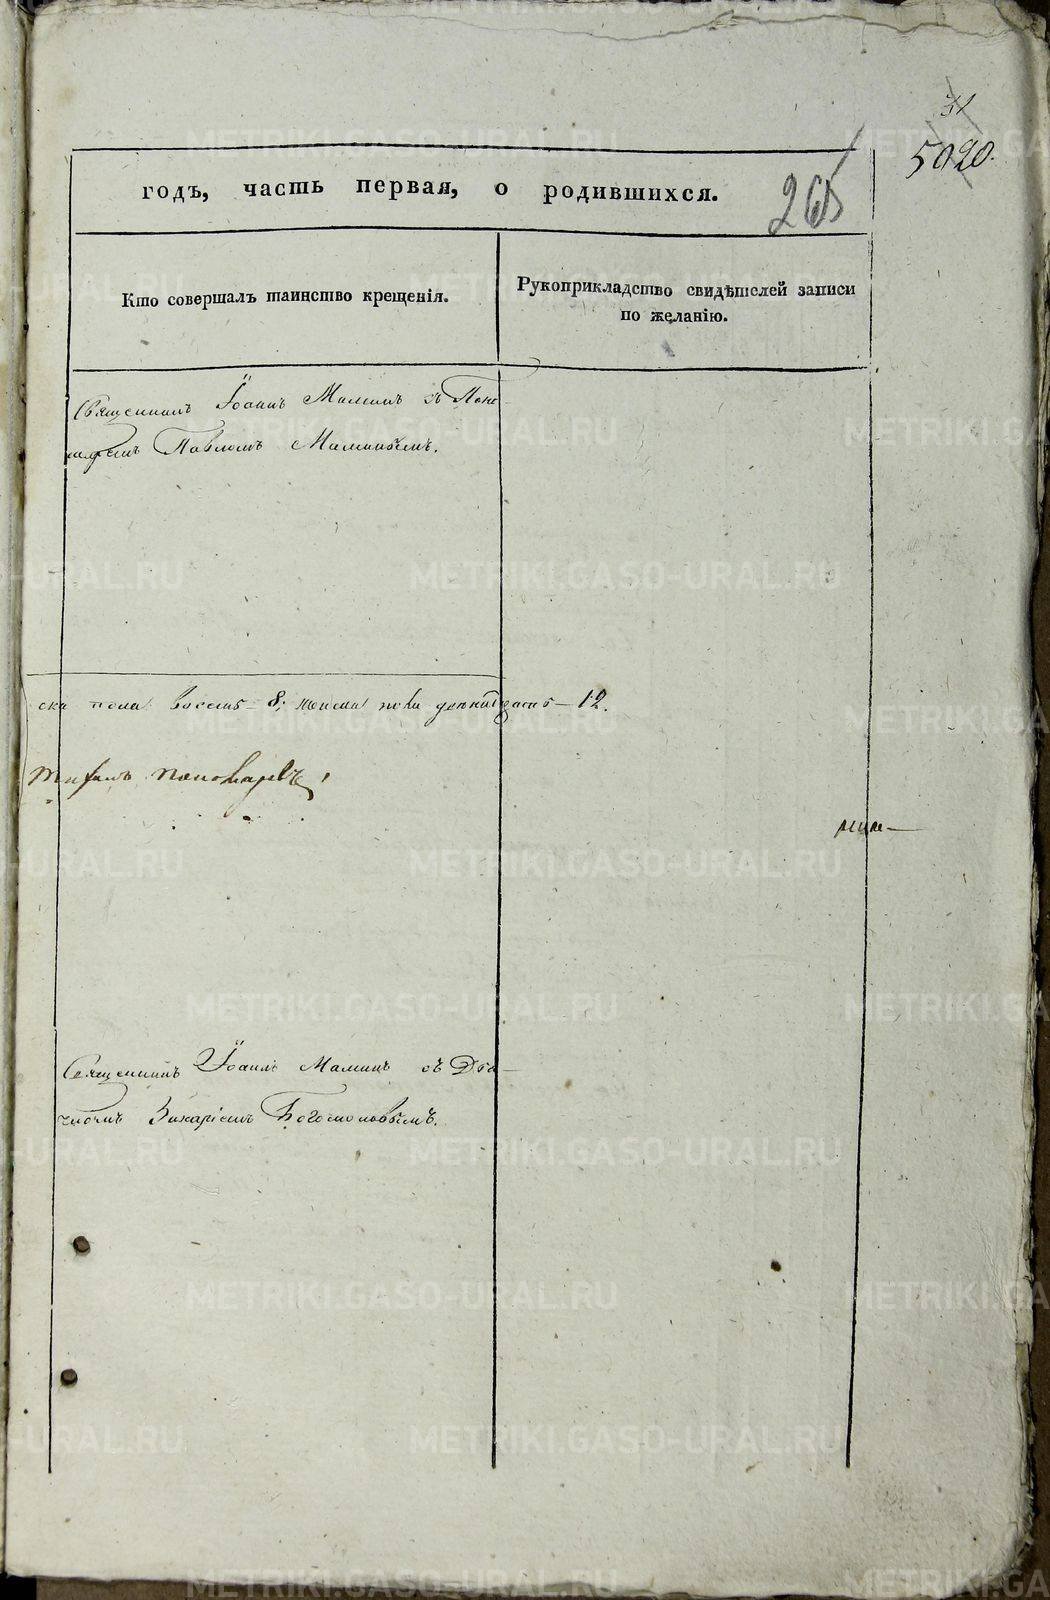 31
5020.
265
годъ, часть первая, о родившихся.
Кто совершалъ таинство крещенія.
Рукоприкладство свидѣтелей записи
по желанію.
Священникъ Іоаннъ Маминъ съ Поно-
маремъ Павломъ Маминымъ.
ска пола восемь – 8; женска пола двенатцать – 12.
пономаревъ
Священникъ Іоаннъ Маминъ съ Дья-
чкомъ Захаріемъ Богомоловымъ.
METRIKI.GASO-URAL.RU